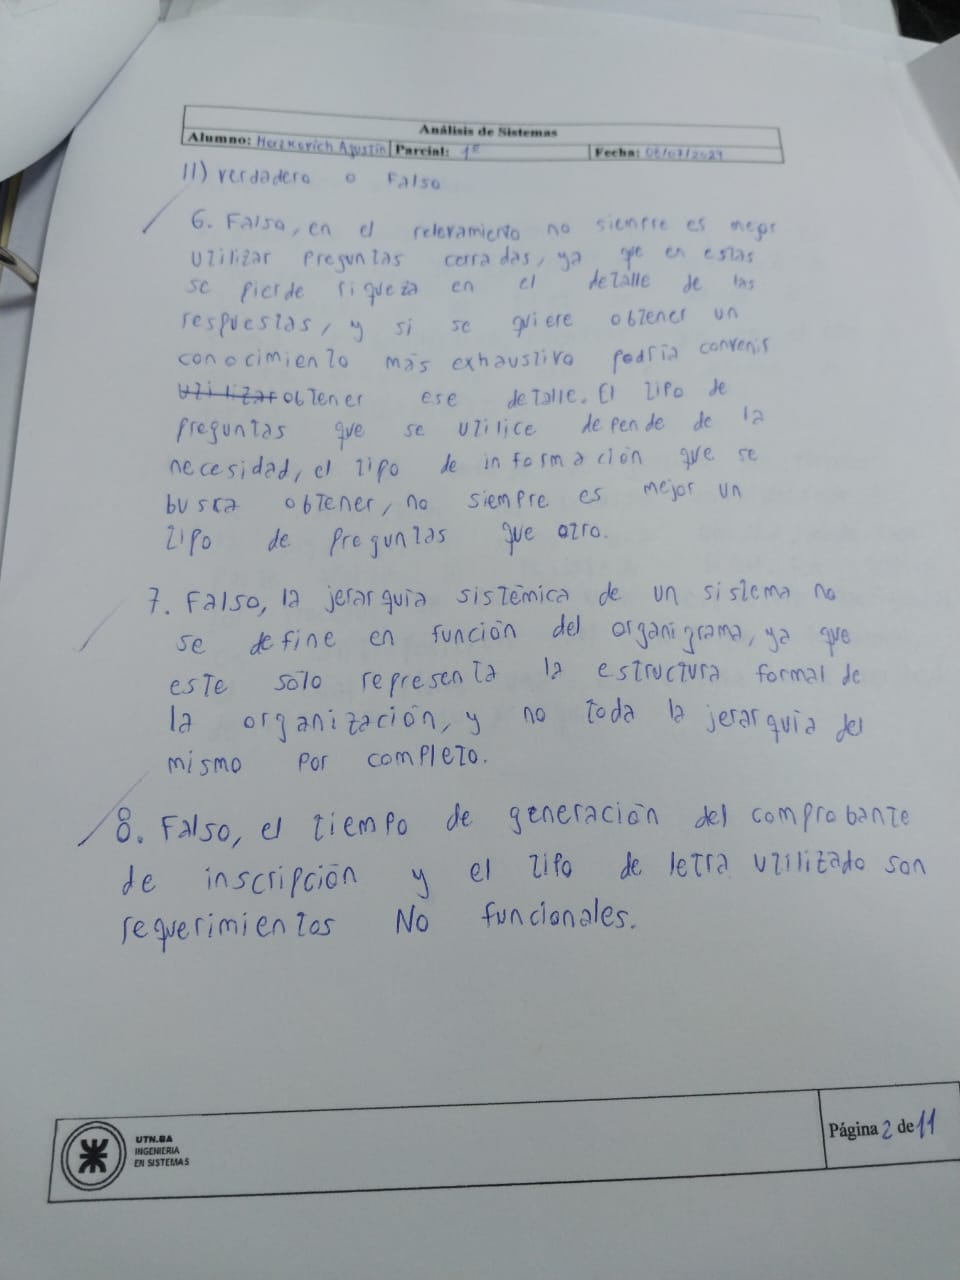 Análisis de Sistemas
Alumno: Herzkovich Agustín Parcial: 1º Fecha: 08/07/2024
II) Verdadero o Falso
6. Falso, en el relevamiento no siempre es mejor
utilizar preguntas cerradas, ya que en estas
se pierde riqueza en el detalle de las
respuestas, y si se quiere obtener un
conocimiento más exhaustivo podría convenir
utilizar obtener ese detalle. El tipo de
preguntas que se utilice depende de la
necesidad, el tipo de información que se
busca obtener, no siempre es mejor un
tipo de preguntas que otro.
7. Falso, la jerarquía sistémica de un sistema no
se define en función del organigrama, ya que
este sólo representa la estructura formal de
la organización, y no toda la jerarquía del
mismo por completo.
8. Falso, el tiempo de generación del comprobante
de inscripción y el tipo de letra utilizado son
requerimientos No funcionales.
UTN.BA
INGENIERIA
EN SISTEMAS
Página 2 de 11